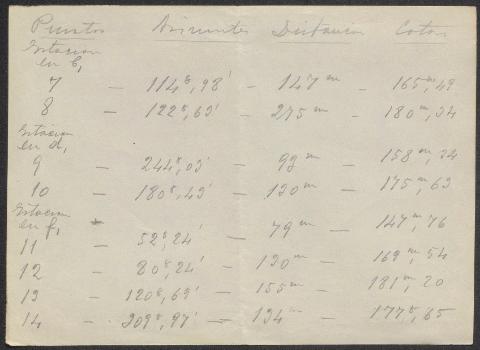 Puntos Azimutes Distancia Cotas
Estacion
en C,
7 — 114g,98' — 147m — 165m,49
8 — 122g,63' — 275m — 180m,34
Estacion
en d,
9 — 244g,03' — 93m — 158m,34
10 — 180g,43' — 130m — 175m,63
Estacion
en f,
11 — 52g,24' — 79m — 147m,76
12 — 80g,24' — 130m — 169m,54
13 — 120g,69' — 155m — 181m,20
14 — 309g,97' — 134m — 177g,65